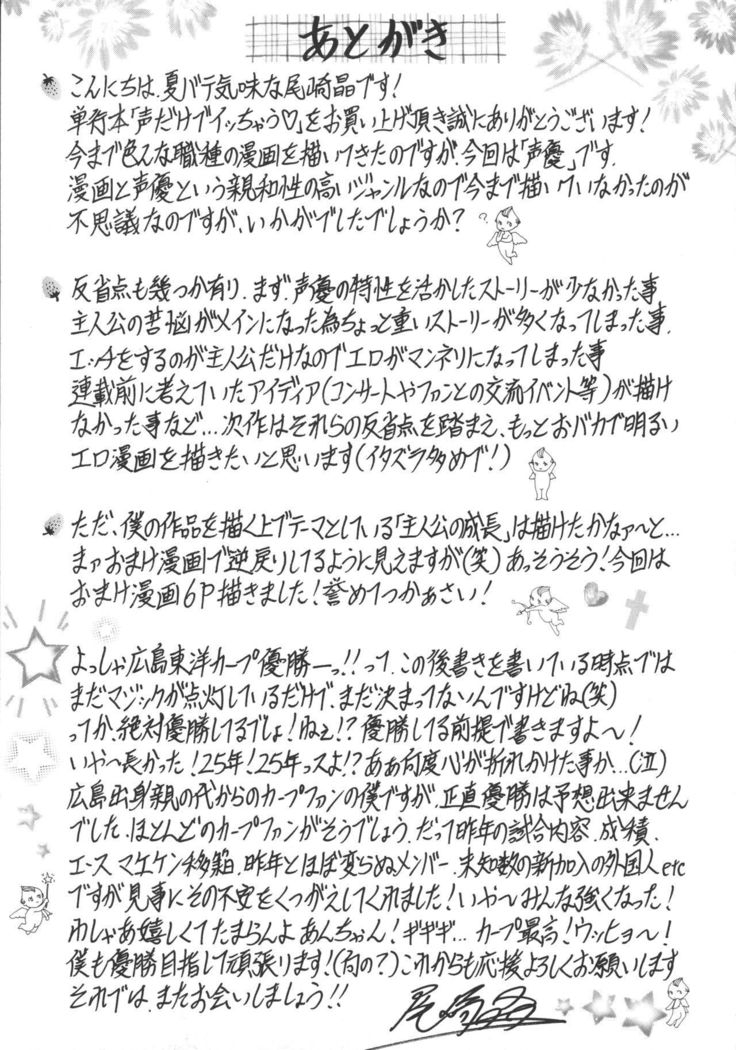 あとがき
こんにちは、夏バテ気味な尾崎晶です!
単行本「声だけでイッちゃう♡」をお買い上げ頂き誠にありがとうございます!
今まで色んな職種の漫画を描いてきたのですが、今回は「声優」です.
漫画と声優という親和性の高いジャンルなので今まで描いていなかったのが
不思議なのですが、いかがでしたでしょうか?
?
反省点も幾つか有り、まず、声優の特性を活かしたストーリーが少なかった事
主人公の苦悩がメインになった為ちょっと重いストーリーが多くなってしまった事.
エッチをするのが主人公だけなのでエロがマンネリになってしまった事
連載前に考えていたアイディア(コンサートやファンとの交流イベント等)が描け
なかった事など...次作はそれらの反省点を踏まえ、もっとおバカで明るい
エロ漫画を描きたいと思います(イタズラ多めで!)
ただ、僕の作品を描く上でテーマとしている「主人公の成長」は描けたかなァ〜と...
まァおまけ漫画で逆戻りしてるように見えますが(笑)あっそうそう!今回は
おまけ漫画6P描きました!誉めてつかぁさい!
よっしゃ広島東洋カープ優勝ーっ!!って、この後書きを書いている時点では
まだマジックが点灯しているだけで、まだ決まってないんですけどね(笑)
ってか、絶対優勝してるでしょ!ねぇ!?優勝してる前提で書きますよ〜!
いや〜長かった!25年!25年っスよ!?あぁ何度心が折れかけた事か...(泣)
広島出身親の代からのカープファンの僕ですが、正直優勝は予想出来ません
でした.ほとんどのカープファンがそうでしょう、だって昨年の試合内容、成績、
エース マエケン移籍、昨年とほぼ変らぬメンバー、未知数の新加入の外国人etc
ですが見事にその不安をくつがえしてくれました!いや〜みんな強くなった!
わしゃあ嬉しくてたまらんよ あんちゃん!ギギギ...カープ最高!ウッヒョ〜!
僕も優勝目指して頑張ります!(何の?)これからも応援よろしくお願いします
それでは、またお会いしましょう!!
尾崎晶